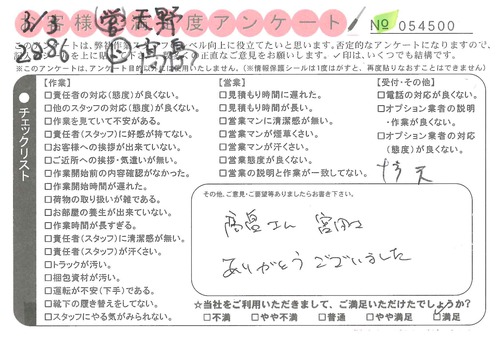 お客様満足度アンケート
№ 054500
3/3
2886
営 天野
このアンケートは、弊社作業スタッフのレベル向上に役立てたいと思います。否定的なアンケートになりますので、
お客様の正直なご意見をお願いします。✓印は、いくつでも結構です。
※このアンケートは、アンケート目的以外には使用いたしません。(※情報保護シールは1度はがすと、再度貼りなおすことはできません)
チェックリスト
【作業】
□責任者の対応(態度)が良くない。
□他のスタッフの対応(態度)が良くない。
□作業を見ていて不安がある。
□責任者(スタッフ)に好感が持てない。
□お客様への挨拶が出来ていない。
□ご近所への挨拶・気遣いが無い。
□作業開始前の内容確認がなかった。
□作業開始時間が遅れた。
□荷物の取り扱いが雑である。
□お部屋の養生が出来ていない。
□作業時間が長すぎる。
□責任者(スタッフ)に清潔感が無い。
□責任者(スタッフ)が汗くさい。
□トラックが汚い。
□梱包資材が汚い。
□運転が不安(下手)である。
□靴下の履き替えをしてない。
□スタッフにやる気がみられない。
【営業】
□見積もり時間に遅れた。
□見積もり時間が長い。
□営業マンに清潔感が無い。
□営業マンが煙草くさい。
□営業マンが汗くさい。
□営業態度が良くない。
□営業の説明と作業が一致してない。
【受付・その他】
□電話の対応が良くない。
□オプション業者の説明
・作業が良くない。
□オプション業者の対応
(態度)が良くない。
その他、ご意見・ご要望等ありましたらお書き下さい。
ありがとうございました
☆当社をご利用いただきまして、ご満足いただけたでしょうか?
□不満 □やや不満 □普通 □やや満足 □満足